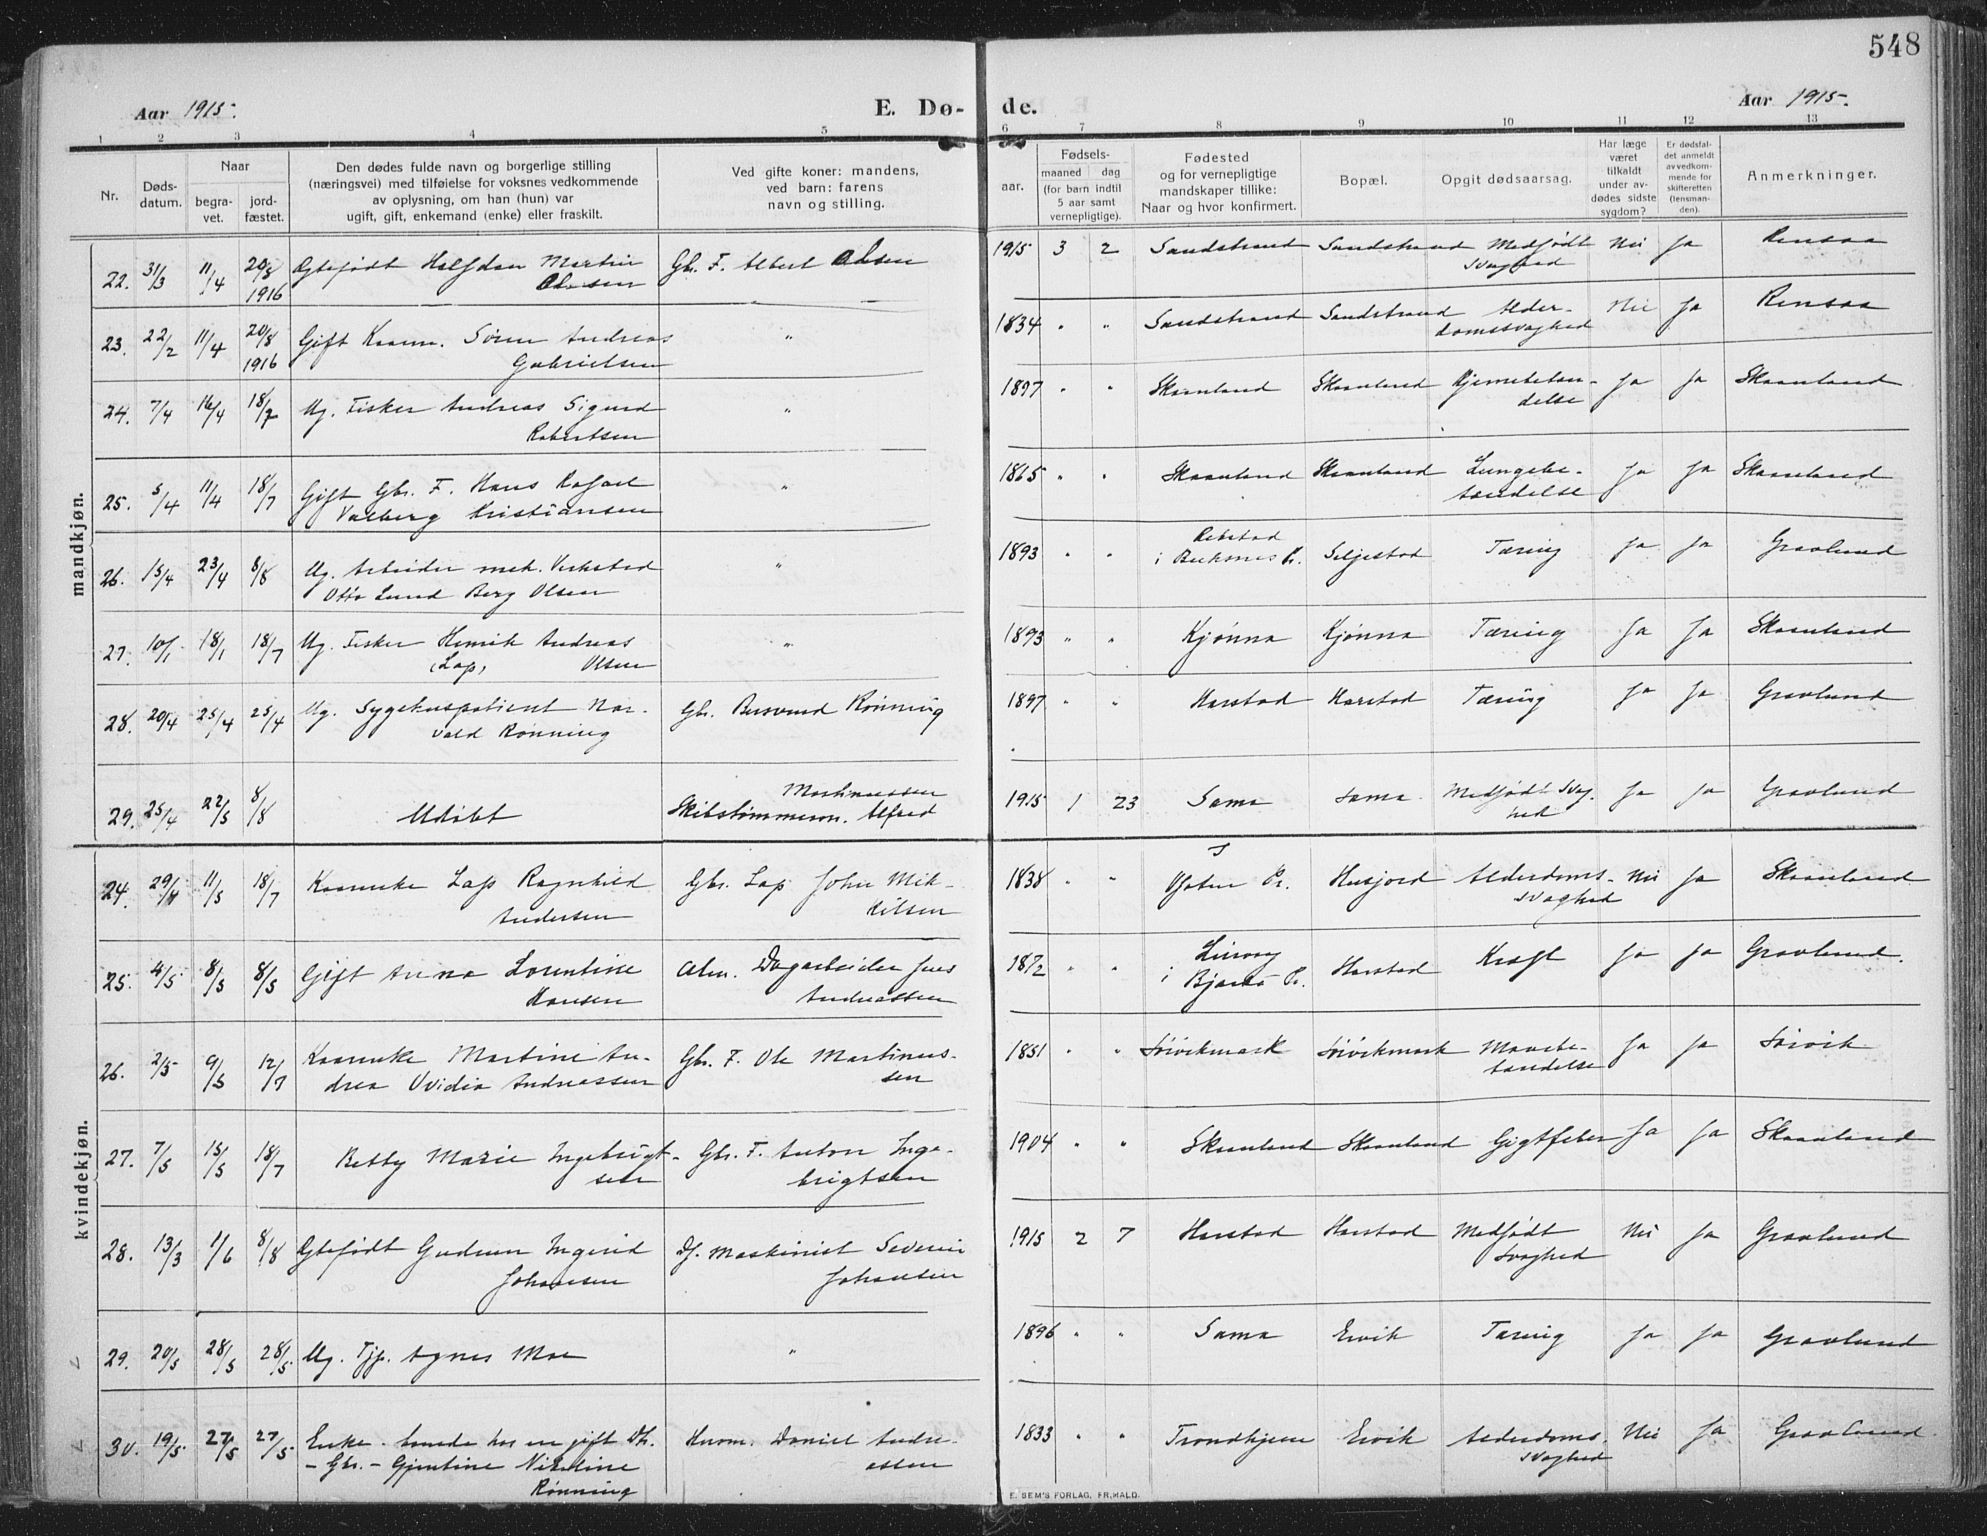 548
Aar 1915. E. Dø- de. Aar 1915.
1 2 3 4 5 6 7 8 9 10 11 12 13
Nr.
Døds-
datum.
Naar
begra-
vet.
jord-
fæstet.
Den dødes fulde navn og borgerlige stilling
(næringsvei) med tilføielse for voksnes vedkommende
av oplysning, om han (hun) var
ugift, gift, enkemand (enke) eller fraskilt.
Ved gifte koner: mandens,
ved barn: farens
navn og stilling.
Fødsels-
aar.
maaned
dag
(for barn indtil
5 aar samt
vernepligtige).
Fødested
og for vernepligtige
mandskaper tillike:
Naar og hvor konfirmert.
Bopæl.
Opgit dødsaarsag.
Har læge
været
tilkaldt
under av-
dødes sidste
sygdom?
Er dødsfal-
det anmeldt
av vedkom-
mende for
skifteretten
(lensman-
den).
Anmerkninger.
mandkjøn.
22. 31/3 11/4 20/8 Egtefødt Halfdan Martin Gbr. F. Albert Olsen 1915 3 2 Sandstrand Sandstrand Medfødt Nei Ja Rensaa
1916 Olsen svaghed
23. 22/2 11/4 20/8 Gift Kaarm. Søren Andreas " 1834 " " Sandstrand Sandstrand Alder- Nei Ja Rensaa
1916 Gabrielsen domssvaghed
24. 7/4 16/4 18/7 Ug. Fisker Andreas Sigurd " 1897 " " Skaanland Skaanland Hjernebetæn- Ja Ja Skaanland
Robertsen delse
25. 5/4 11/4 18/7 Gift Gbr. F. Hans Rafael " 1865 " " Skaanland Skaanland Lungebe- Ja Ja Skaanland
Valberg Kristiansen tændelse
26. 15/4 23/4 8/8 Ug. Arbeider mek. Verksted " 1893 " " Seljestad Tæring Ja Ja Gravlund
Otto Lund Berg Olsen i Buksnes Pr.
27. 10/1 18/1 18/7 Ug. Fisker Henrik Andreas " 1893 " " Kjønna Kjønna Tæring Ja Ja Skaanland
(Lap) Olsen
28. 20/4 25/4 25/4 Ug. Sygehuspatient Har- Gbr. Rønning 1897 " " Harstad Harstad Tæring Ja Ja Gravlund
vald Rønning
29. 25/4 22/5 8/8 Udøbt Martinussen 1915 1 23 Sama Sama Medfødt Svag- Ja Ja Gravlund
Skibstømmerm. Alfred hed
kvindekjøn.
24. 29/4 11/5 18/7 Kaarenke Lap Ragnhild Gbr. Lap John Mik- 1838 " " Ofoten Pr. Husjord Alderdoms- Nei Ja Skaanland
Andersen kelsen svaghed
25. 4/5 8/5 8/5 Gift Anna Lorentine Alm. Dagarbeider Jens 1872 " " Harstad Kræft Ja Ja Gravlund.
Hansen Andreassen i Bjarkø Pr.
26. 2/5 9/5 12/7 Kaarenke Martine An- Gbr. F. Ole Martinus- 1851 " " Sørvikmark Sørvikmark Mavebe- Ja Ja Sørvik
drea Ovidia Andreassen sen tændelse
27. 7/5 15/5 18/7 Betty Marie Ingebrigt- Gbr. F. Anton Inge- 1904 " " Skaanland Skaanland Gigtfeber Ja Ja Skaanland
sen brigtsen
28. 13/3 1/6 8/8 Egtefødt Gudrun Ingerid Df. Maskinist Severin 1915 2 7 Harstad Harstad Medfødt Nei Ja Gravlund
Johansen Johansen Svaghed
29. 20/5 28/5 28/5. Ug. Tjp. Agnes Moe " 1896 " " Sama Ervik Tæring Ja Ja Gravlund
30. 19/5 27/5 27/5. Enke. boende hos en gift Dtr. Husm. Daniel Andre- 1833 " " Trondhjem Ervik Alderdoms- Nei Ja Gravlund
- Gbr. - Gjertine Nikoline assen svaghed
Rønning
E. SEM'S FORLAG, FR.HALD.